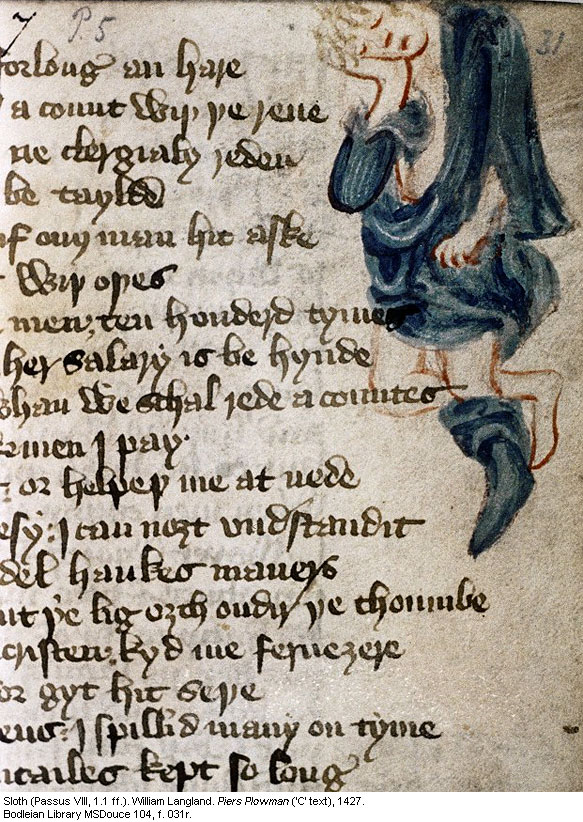 P. 5
31
forlong an hare
a count wiþ þe reue
ne clergialy reden
be tayld
if ony man hit aske
wiþ oþes
men, ten honderd tymes
her salary is be hynde
whan we schal rede a countes
kmen I pay
or helpeþ me at nede
esy: I can noȝt vndstandit
del haukes maners
þe lig orȝth ondir þe thoumbe
cristen, kyd me ferneȝere
for ȝyt hit seþe
I spillid many on tyme
kept so long
Sloth (Passus VIII, 1.1 ff.). William Langland. Piers Plowman ('C' text), 1427.
Bodleian Library MSDouce 104, f. 031r.